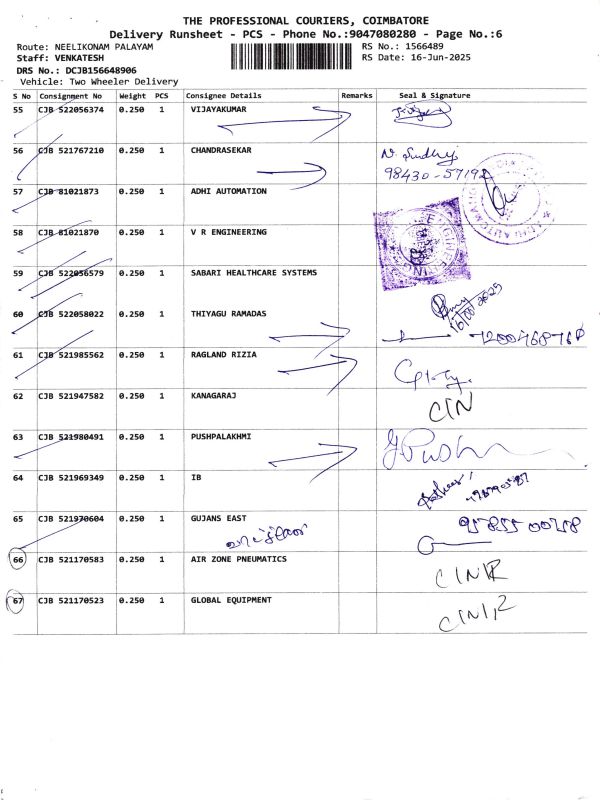 THE PROFESSIONAL COURIERS, COIMBATORE
Delivery Runsheet - PCS - Phone No.:9047080280 - Page No.:6
Route: NEELIKONAM PALAYAM RS No.: 1566489
Staff: VENKATESH RS Date: 16-Jun-2025
DRS No.: DCJB156648906
Vehicle: Two Wheeler Delivery
S No Consignment No Weight PCS Consignee Details Remarks Seal & Signature
55 CJB 522056374 0.250 1 VIJAYAKUMAR
56 CJB 521767210 0.250 1 CHANDRASEKAR
98430-57192
57 CJB 81021873 0.250 1 ADHI AUTOMATION
58 CJB 81021870 0.250 1 V R ENGINEERING
59 CJB 522056579 0.250 1 SABARI HEALTHCARE SYSTEMS
60 CJB 522058022 0.250 1 THIYAGU RAMADAS
61 CJB 521985562 0.250 1 RAGLAND RIZIA
62 CJB 521947582 0.250 1 KANAGARAJ CIN
63 CJB 521980491 0.250 1 PUSHPALAKHMI
64 CJB 521969349 0.250 1 IB
65 CJB 521970604 0.250 1 GUJANS EAST
66 CJB 521170583 0.250 1 AIR ZONE PNEUMATICS
67 CJB 521170523 0.250 1 GLOBAL EQUIPMENT